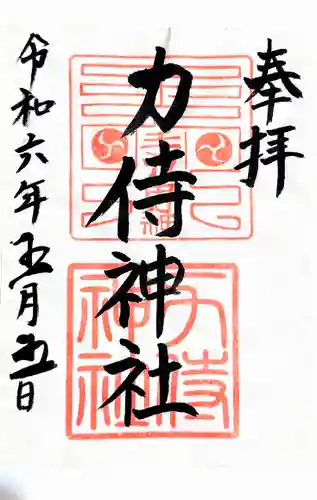 奉拝
力侍神社
令和六年五月五日
力侍神社